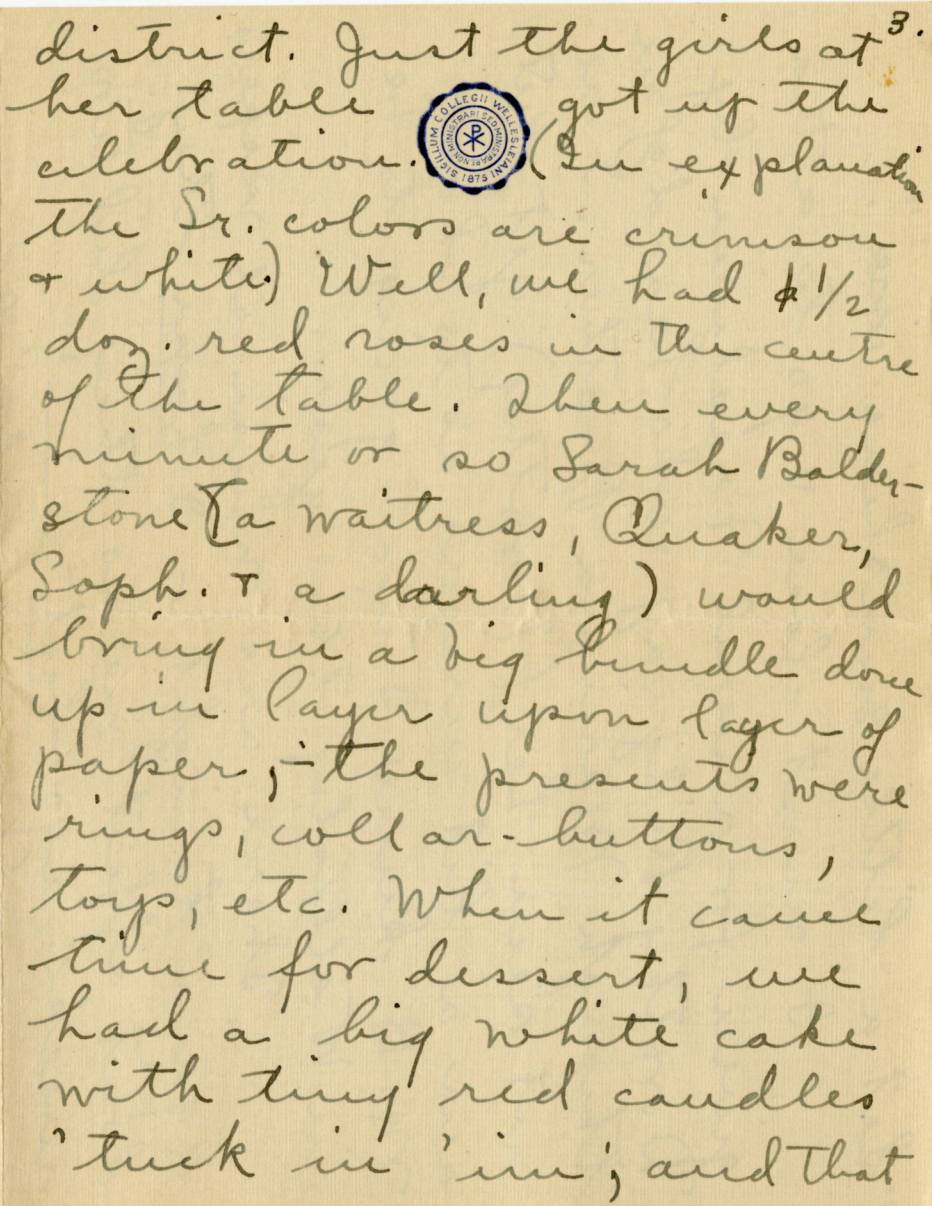 3.
district. Just the girls at
her table got up the
celebration. (In explanation
the Sr. colors are crimson
& white.) Well, we had 1 1/2
doz. red roses in the centre
of the table. Then every
minute or so Sarah Balder-
stone (a waitress, Quaker,
Soph. & a darling) would
bring in a big bundle done
up in layer upon layer of
paper; – the presents were
rings, collar-buttons,
toys, etc. When it came
time for dessert, we
had a big white cake
with tiny red candles
'tuck in 'im'; and that
SIGILLUM COLLEGII WELLESLEIANI 1875
NON MINISTRARI SED MINISTRARE